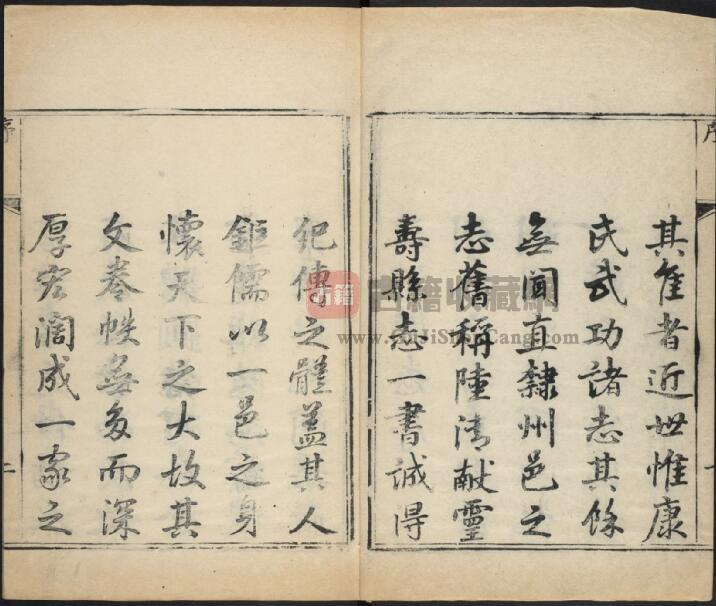 其隹者近世惟康
氏武功諸志其餘
無聞直隸州邑之
志舊稱陸清献靈
壽縣志一書誠得
紀傳之體蓋其人
鉅儒以一邑之身
懷天下之大故其
文卷帙無多而深
厚宏濶成一家之
序
序
一
二
古籍
古籍收藏网
www.GuJiShouCang.com